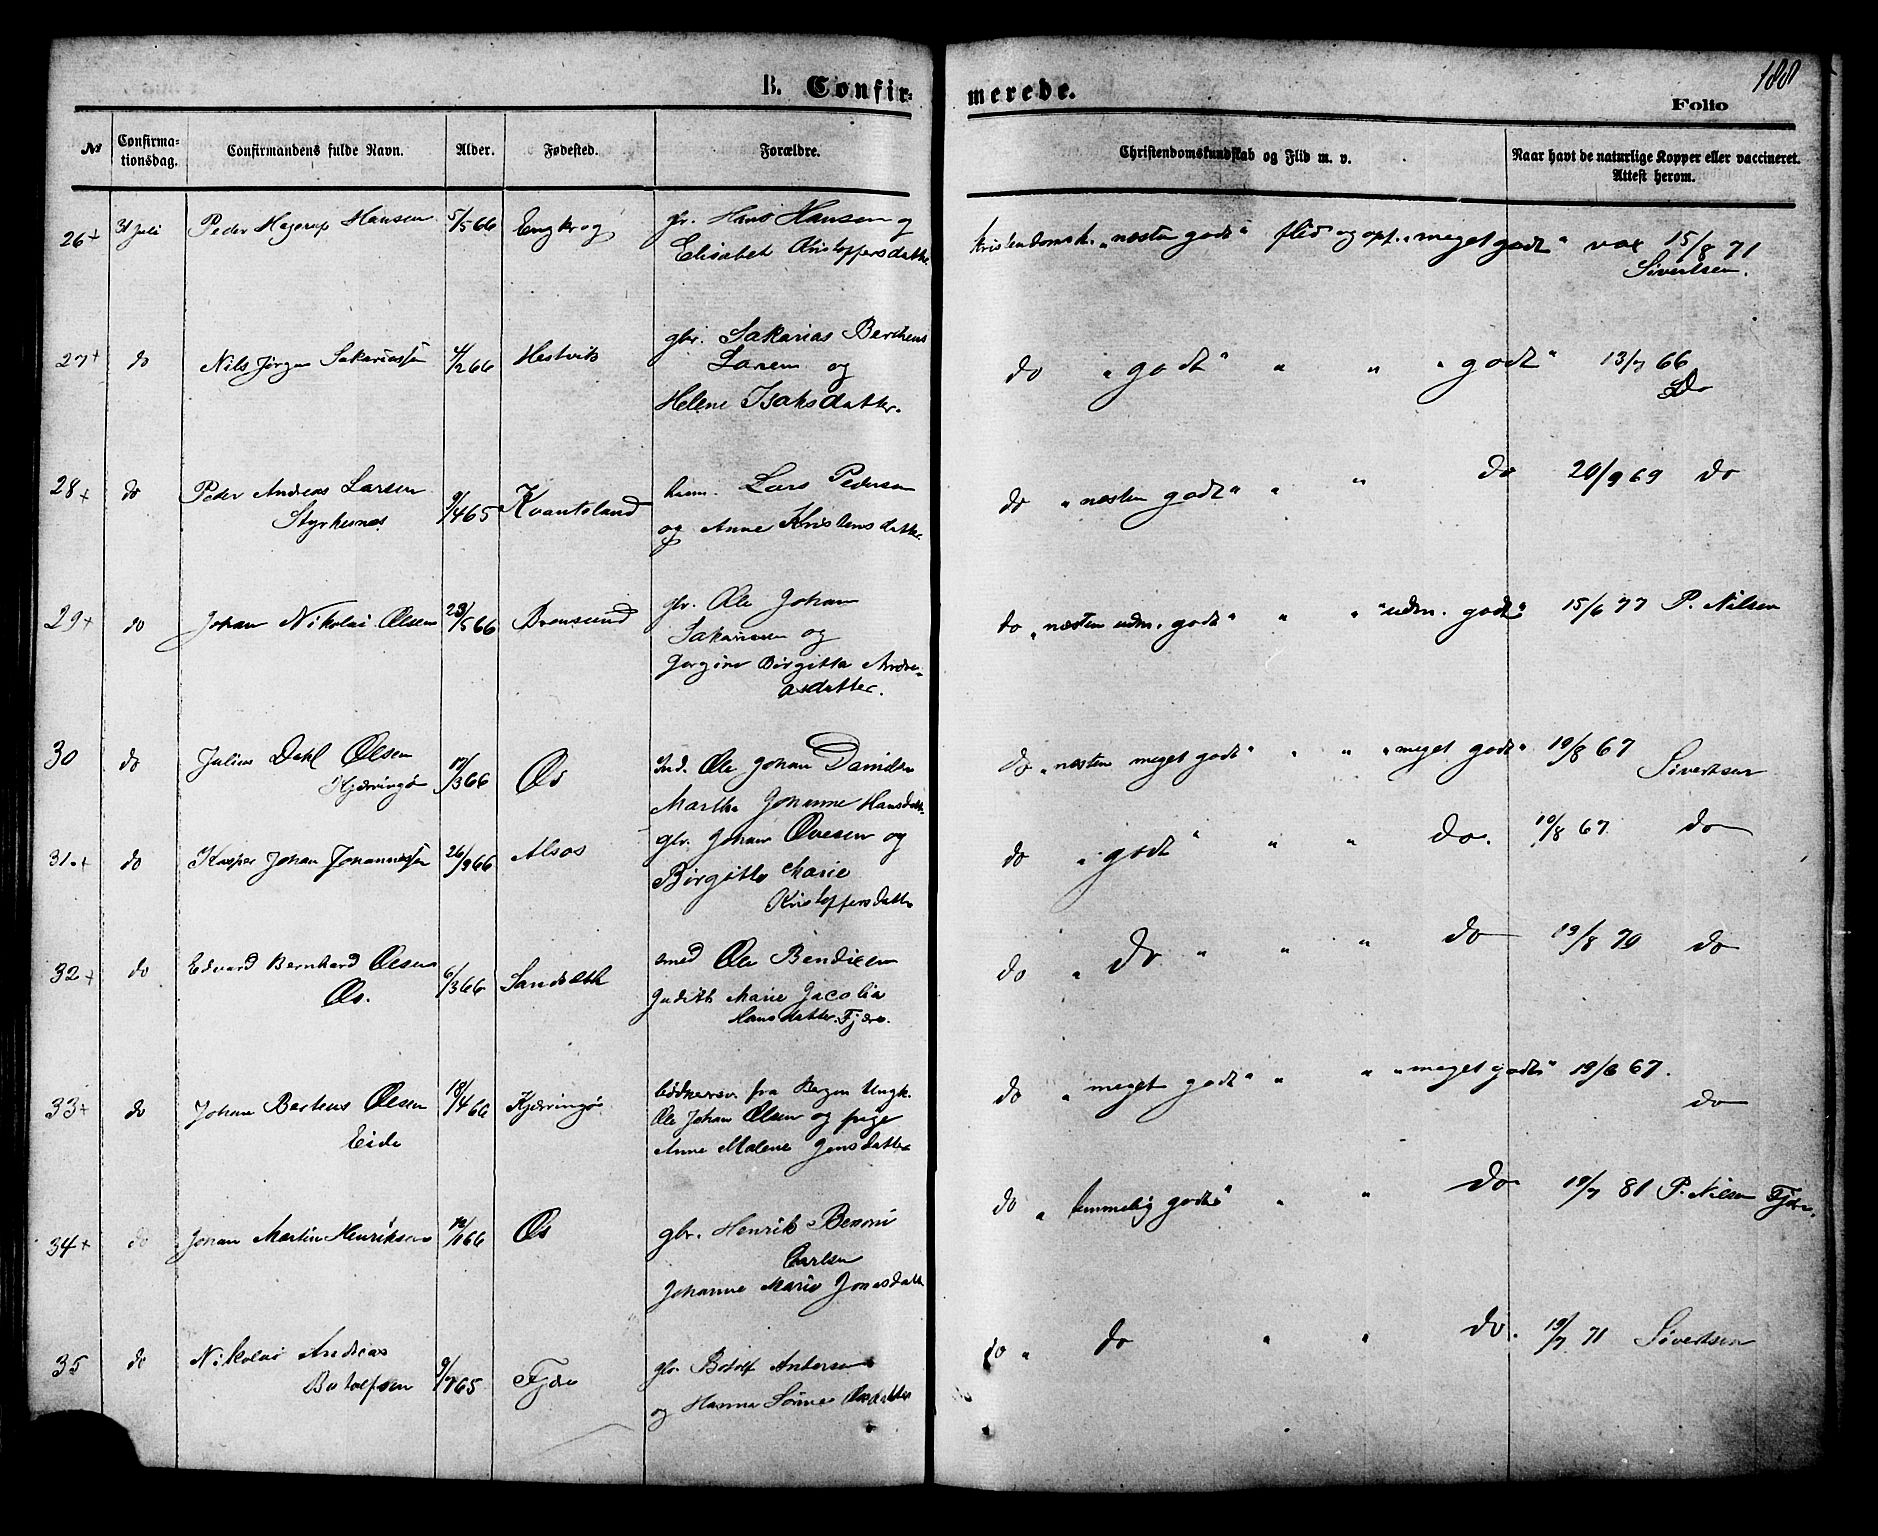 B. Confir-
merede.
188
Folio
№
Confirma-
tionsdag.
Confirmandens fulde Navn.
Alder.
Fødested.
Forældre.
Christendomskundskab og Flid m. v.
Naar havt de naturlige Kopper eller vaccineret.
Attest herom.
26+ 31 Juli Peder Hagerup Hansen 5/5 66 Engkrog gbr. Hans Hansen og
Elisabet Kristoffersdatter
Kristendomsk. "næsten godt" flid og opf. "meget godt" vax 15/8 71
Sivertsen.
27+ do Nils Jørgen Sakariassen 4/2 66 Hestvik gbr. Sakarias Berthens
Larsen og
Helene Isaksdatter.
do "godt" " " "godt" 13/7 66
Do
28+ do Peder Andreas Larsen 9/4 65 Kvantoland husm. Lars Pedersen
Styrkesnes
og Anne Kristensdatter.
do "næsten godt" " " do 20/9 69 do
29+ do Johan Nikolai Olsen 23/5 66 Brensund gbr. Ole Johan
Sakariassen og
Jørgine Birgitta Andre-
asdatter.
do "næsten udm. godt" " " "udm. godt" 15/6 77 P. Nilsen
30 do Julius Dahl Olsen 17/3 66 Os Ind. Ole Johan Davidsen
Kjærringø
Martha Johanne Hansdatter
do "næsten meget godt" " " "meget godt" 19/8 67
Sivertsen
31.+ do Kasper Johan Johannessen 26/9 66 Alsos gbr. Johan Ovesen og
Birgitte Marie
Kristoffersdatter
do "godt" " " do. 19/8 67 do
32+ do Edvard Bernhard Olsen 6/3 66 Sandsleth smed Ole Bendixen
Os.
Judith Marie Jacobia
Hansdatter. Fjære.
do " do " " " do 19/8 70 do
33+ do Johan Berteus Olsen 18/4 66 Kjærringø bødkersv. fra Bergen Ungk.
Eide
Ole Johan Olsen og pige
Anne Malene Jensdatter
do "meget godt" " " "meget godt" 19/8 67.
do
34+ do Johan Martin Henriksen 66 Os gbr. Henrik Benoni
Carlsen
Johanne Marie Jonasdatter
do "temmelig godt" " " do 19/7 81 P. Nilsen Fjære.
35 do Nikolai Andreas
Botolfsen 9/7 65 Fjære gbr. Botolf Andersen
og Hanna Sørine
do " do " " do. 19/7 71 Sivertsen